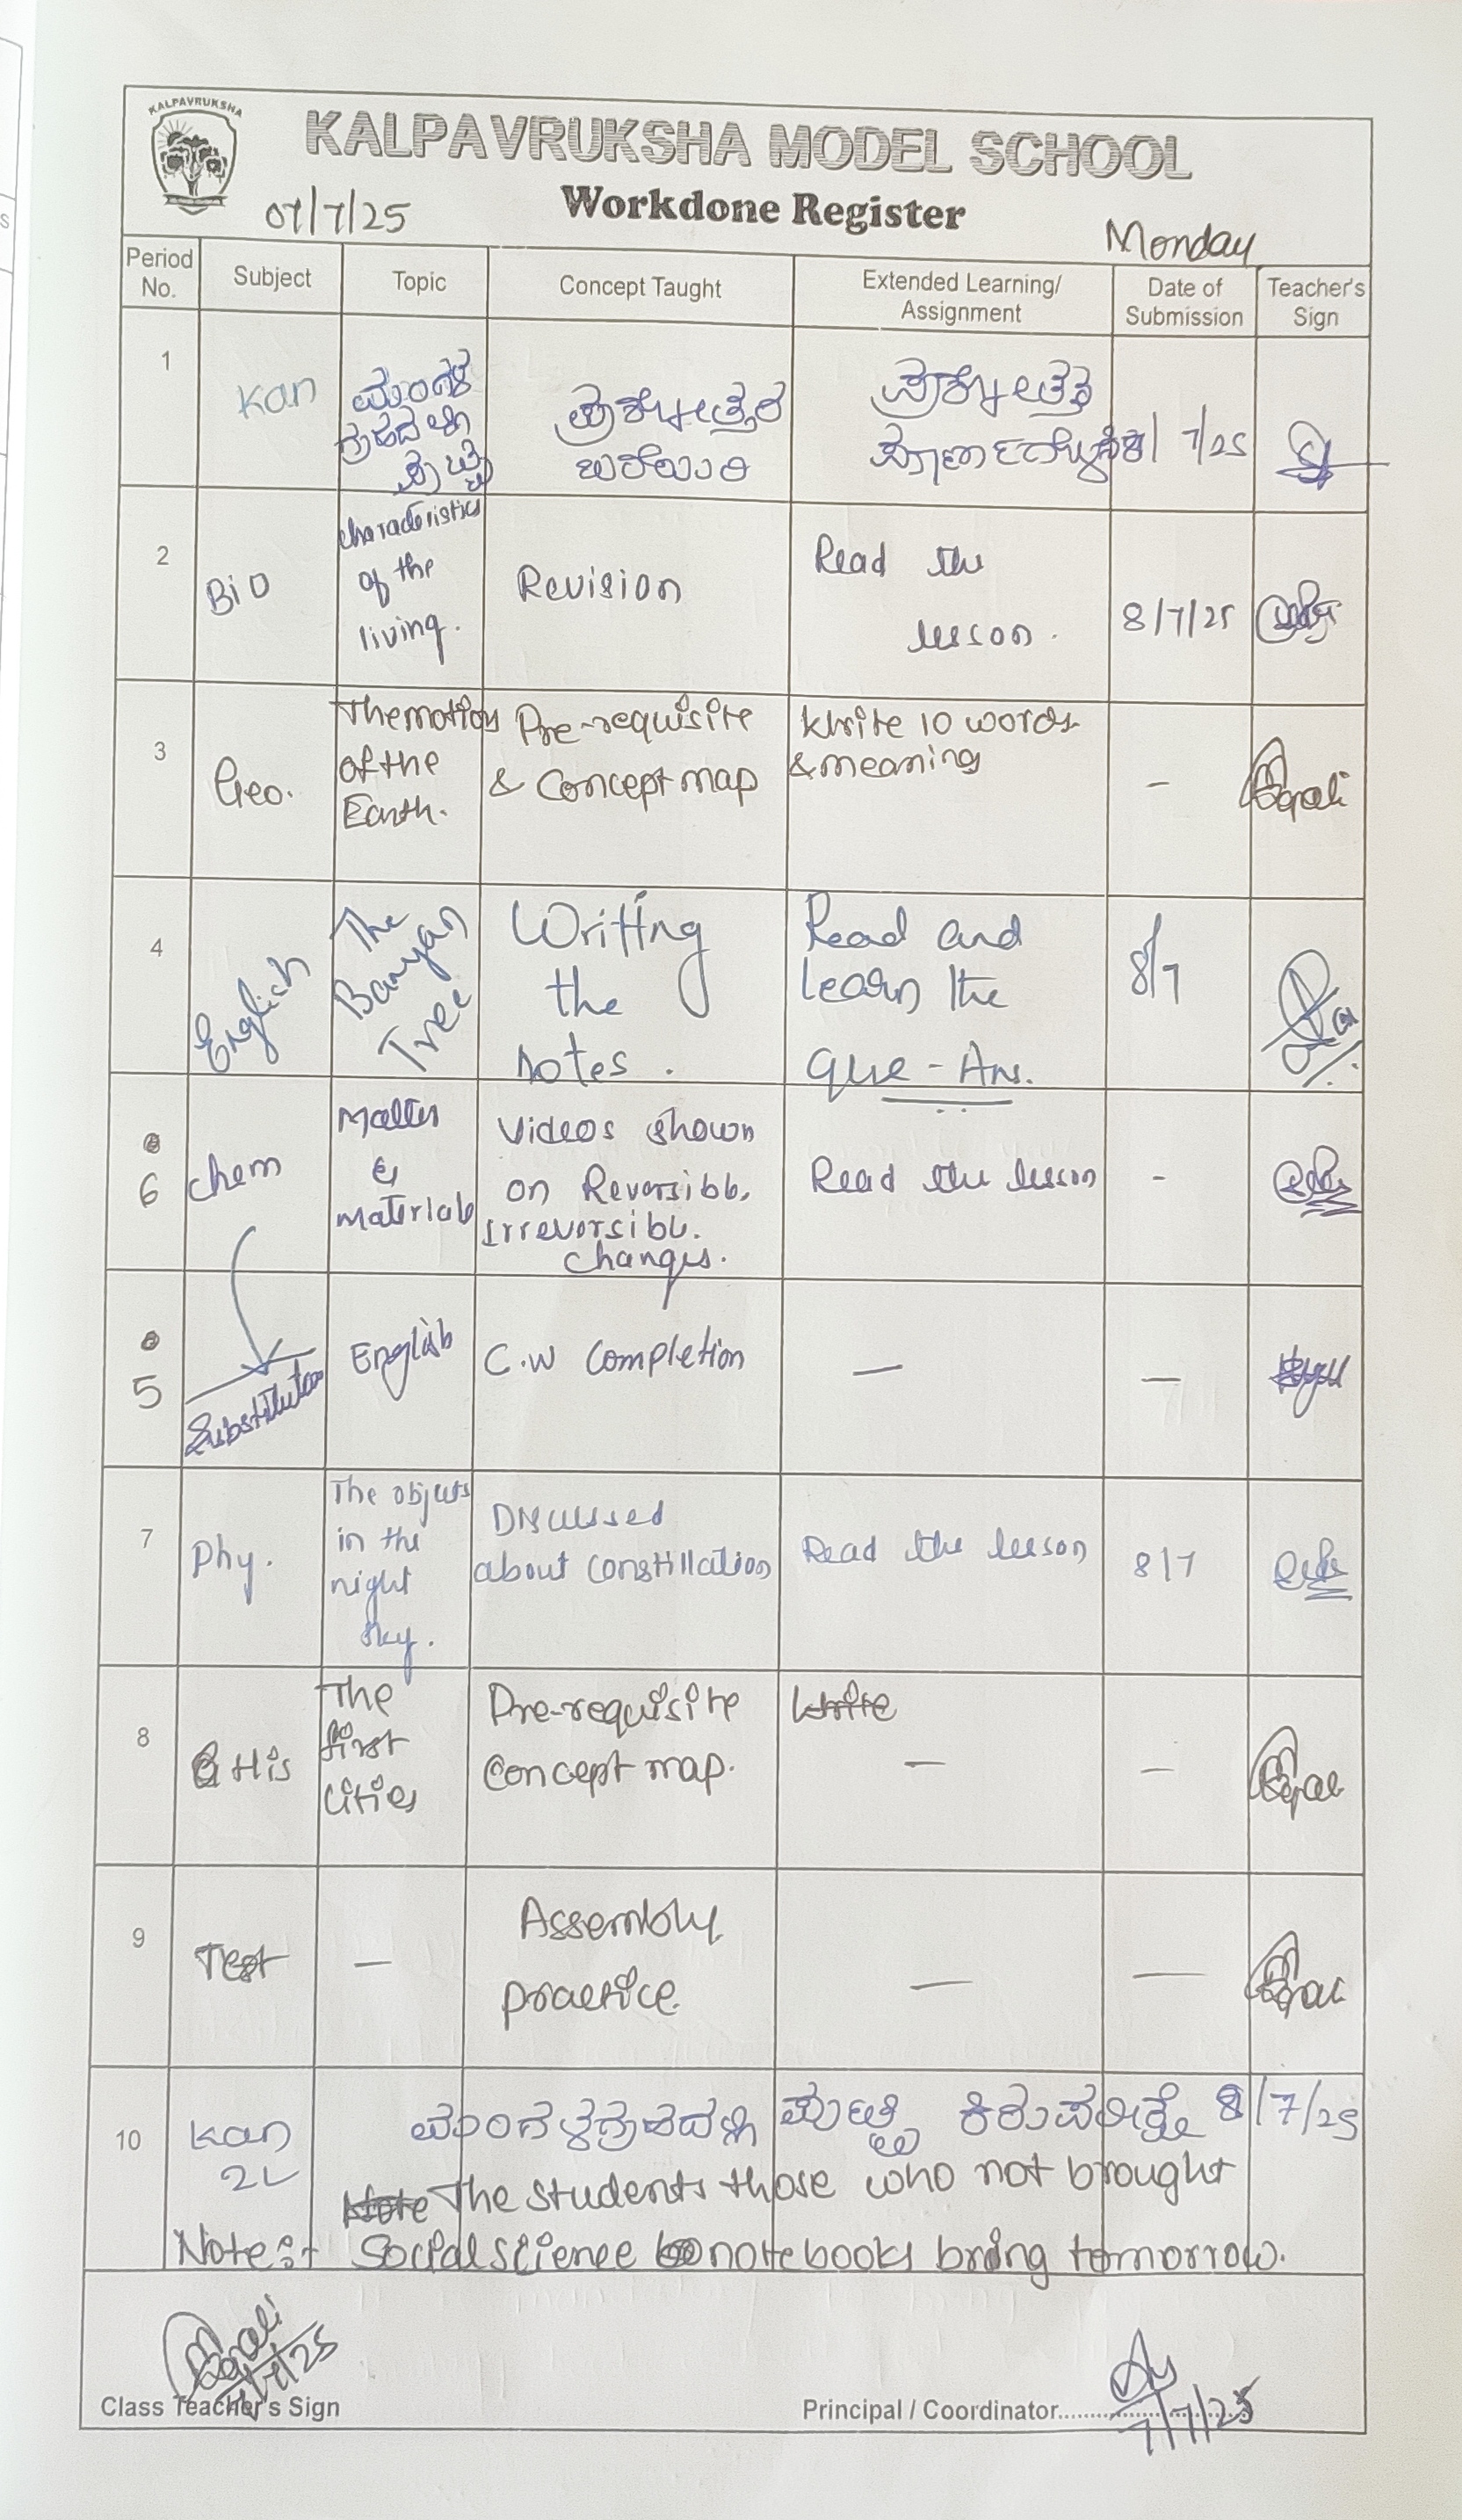 KALPAVRUKSHA
KALPAVRUKSHA MODEL SCHOOL
Workdone Register
07/7/25
Monday
Period No.
Subject
Topic
Concept Taught
Extended Learning/ Assignment
Date of Submission
Teacher's Sign
1
Kan
ಮಂಗಳ
ಗ್ರಹದಲ್ಲಿ
ಪುಟ್ಟಿ
ಪ್ರಶ್ನೋತ್ತರ
ಬರೆಯಿರಿ
ಪ್ರಶ್ನೋತ್ತರ
8/7/25
2
BiO
characteristics
of the
living.
Revision
Read the
lesson.
8/7/25
3
Geo.
The motion
of the
Earth.
Pre-requisite
& Concept map
Write 10 words
& meaning
-
4
English
The
Banyan
Tree
Writting
the
notes.
Read and
Learn the
que - Ans.
8/7
6
chem
Matter
&
materials
Videos shown
on Reversible,
Irreversible.
changes.
Read the lesson
-
5
Substitution
English
C.W completion
—
—
7
Phy.
The objects
in the
night
sky.
Discussed
about constillation
Read the lesson
8/7
8
His
The
first
cities
Pre-requisite
Concept map.
Write
—
—
9
Test
—
Assembly
practice.
—
—
10
Kan
2L
ಮಂಗಳ ಗ್ರಹದಲ್ಲಿ ಪುಟ್ಟಿ ಕಿರುಪರೀಕ್ಷೆ 8/7/25
Note The students those who not brought
Note:- Social science notebooks bring tomorrow.
Class Teacher's Sign
Principal / Coordinator
7/7/25